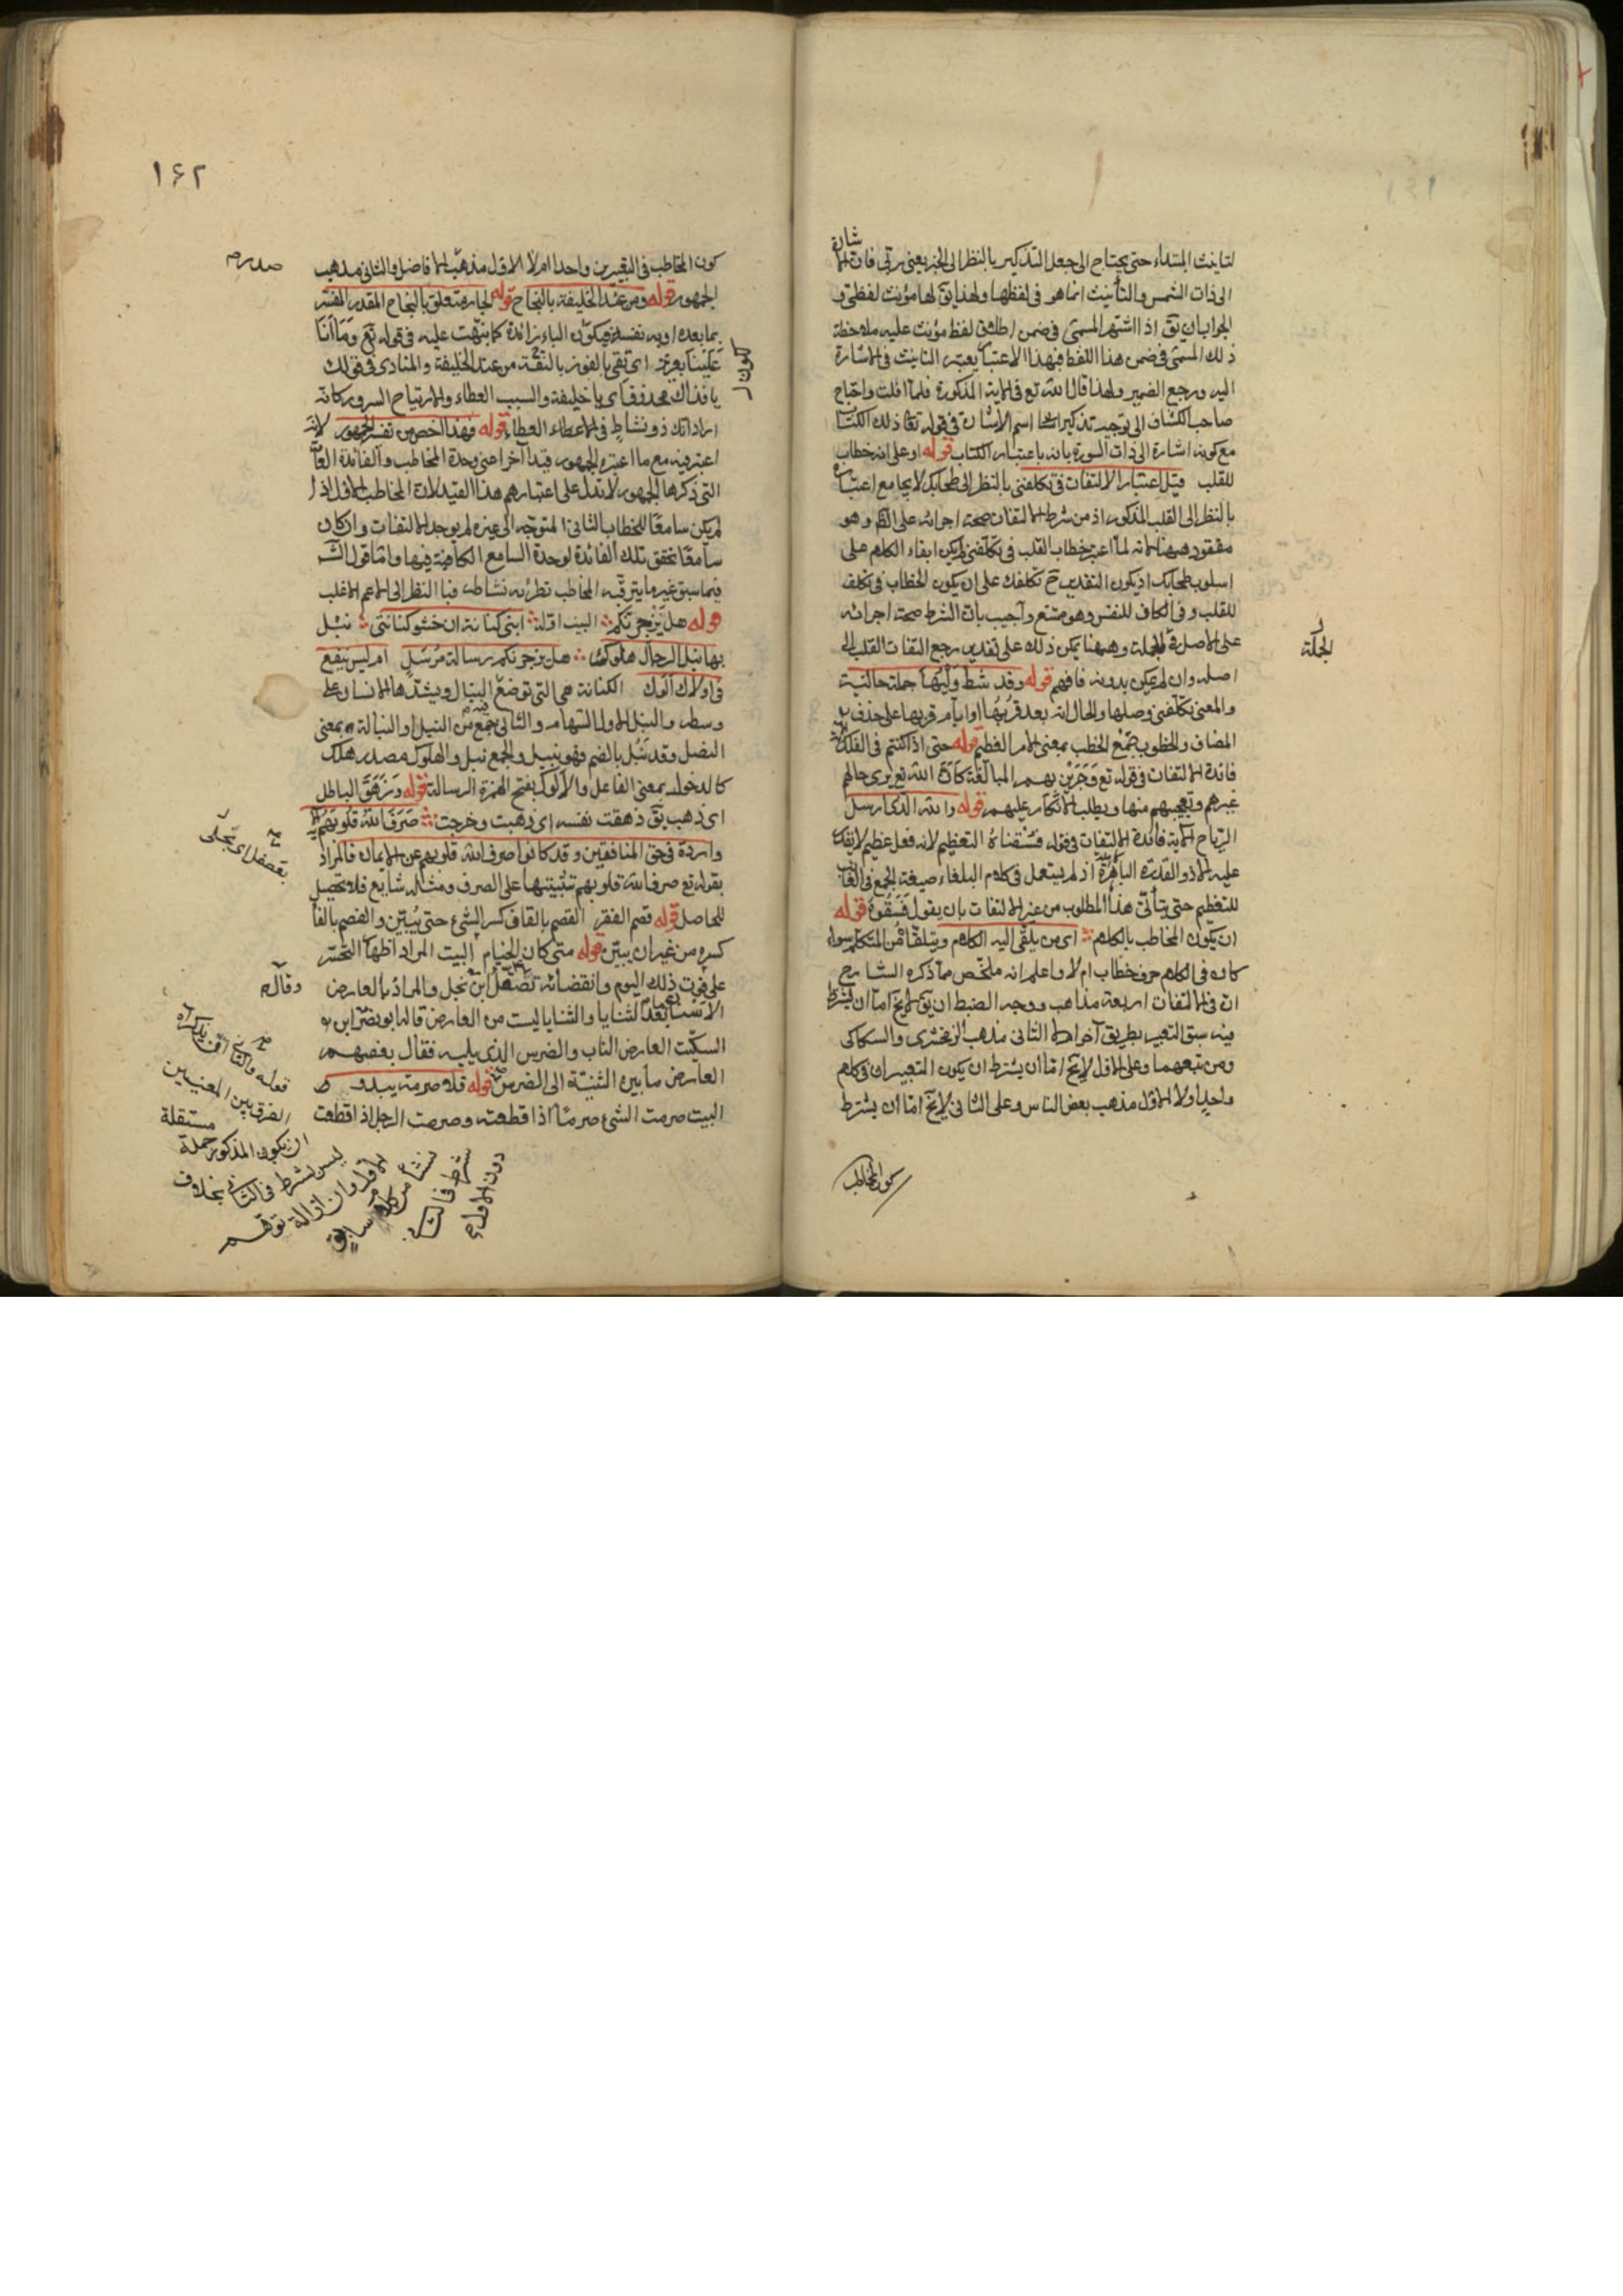 لتانيث المبتداء حتى يحتاج الى جعل التذكير بالنظر الى الخبر يعنى ربى فان الاشارة
الى ذات الشمس والتأنيث انما هو فى لفظها ولهذا يق لها مؤنث لفظى و
الجواب ان يق اذا اشتهر المسمى فى ضمن اطلاق لفظ مؤنث عليه ملاحظة
ذلك المسمى فى ضمن هذا اللفظ فبهذا الاعتبار يعتبر التانيث فى الاشارة
اليه ورجع الضمير ولهذا قال الله تع فى الاية المذكورة فلما افلت واحتاج
صاحب الكشاف الى توجيه تذكير اسم الاشارة فى قوله تعا ذلك الكتاب
مع كونه اشارة الى ذات السورة بانه باعتبار الكتاب قوله او على انه خطاب
للقلب قيل اعتبار الالتفات فى تكلفنى بالنظر الى طحابك لا يجامع اعتباره
بالنظر الى القلب المذكور اذ من شرط الالتفات صحة اجرائه على الظ وهو
مفقود ههنا لانه لما اعتبر خطاب القلب فى تكلفنى لم يكن ابقاء الكلام على
اسلوب طحابك اذ يكون التقدير ح تكلفك على ان يكون الخطاب فى تكلف
للقلب وفى الكاف للنفس وهو ممتنع واجيب بان الشرط صحة اجرائه
على الاصل فى الجملة وههنا يمكن ذلك على تقدير رجع التفات القلب الى
الجملة
اصله وان لم يكن بدونه فافهم قوله وقد شط وليها جملة حالية
والمعنى تكلفنى وصلها والحال انه بعد قربها او ايام قربها على حذف
المضاف والخطوب جمع الخطب بمعنى الامر العظيم قوله حتى اذا كنتم فى الفلك
فائدة الالتفات فى قوله تع وجرين بهم المبالغة كان الله تع يرى حالهم
غيرهم وتعجبهم منها ويطلب الانكار عليهم قوله والله الذى ارسل
الرياح الاية فائدة الالتفات فى قوله فسقناه التعظيم لانه فعل عظيم لا يقدر
عليه الا ذو القدرة الباهرة اذ لم يستعمل فى كلام البلغاء صيغة الجمع فى الغائب
للتعظيم حتى يتأتى هذا المطلوب من غير الالتفات بان يقول فسقوه قوله
ان يكون المخاطب بالكلام اى من يلقى اليه الكلام ويتلقاه من المتكلم سواء
كان فى الكلام حرف خطاب ام لا واعلم انه ملخص مما ذكره الشارح
ان فى الالتفات اربعة مذاهب ووجه الضبط ان يق لا يخ اما ان يشترط
فيه سبق التعبير بطريق آخر اولا الثانى مذهب الزمخشرى والسكاكى
ومن تبعهما وعلى الاول لا يخ اما ان يشترط ان يكون التعبيران فى كلام
واحد اولا الاول مذهب بعض الناس وعلى الثانى لا يخ اما ان يشترط
كون المخاطب
١٦٢
كون المخاطب فى التعبيرين واحدا ام لا الاول مذهب الافاضل والثانى مذهب
صدر م
الجمهور قوله ومن عند الخليفة بالنجاح قوله الجار متعلق بالنجاح المقدر المفسر
بما بعده او به نفسه فيكون الباء زائدة كما نبهت عليه فى قوله تع وما انا
عليها بعزيز اى ثقى بالفوز بالثقة من عند الخليفة والمنادى فى قولك
يا فذاك محذوف اى يا خليفة والسبب العطاء والارتياح السرور كانه
اراد انك ذو نشاط فى الاعطاء العطاء قوله فهذا اخص من تفسير الجمهور لانه
اعتبر فيه مع ما اعتبره الجمهور قيدا آخر اعنى وحدة المخاطب والفائدة العامة
التى ذكرها الجمهور لا تدل على اعتبارهم هذا القيد لان المخاطب الاول اذا
لم يكن سامعا للخطاب الثانى المتوجه الى غيره لم يوجد الالتفات وان كان
سامعا تحقق تلك الفائدة لوحدة السامع الكافية فيها واما قول الش
فيما سبق غير ما يترقبه المخاطب تطرئه نشاطه فبا النظر الى الاعم الاغلب
قوله هل يزجرنكم البيت اوله ابنى كنانة ان حشو كنانتى نبل
بها نبل الرجال هلوك هل يزجرنكم رسالة مرسل ام ليس ينفع
فى اولاك الوك الكنانة هى التى توضع فيه النبال ويشدها الانسان على
وسطه والنبل الاول السهام والثانى جمع من النبل او النبالة بمعنى
الفضل وقد نبل بالضم فهو نبيل والجمع نبل والهلوك مصدر هلك
كالدخول بمعنى الفاعل والالوك بفتح الهمزة الرسالة قوله وزهق الباطل
اى ذهب يق زهقت نفسه اى ذهبت وخرجت صرف الله قلوبهم
واردة فى حق المنافقين وقد كانوا صرف الله قلوبهم عن الايمان فالمراد
بقوله تع صرف الله قلوبهم تثبيتها على الصرف ومثاله شايع فلا تحصيل
للحاصل قوله قصم الفقر القصم بالقاف كسر الشئ حتى يبين والفصم بالفا
كسره من غير ان يبين قوله متى كان الخيام البيت المراد اظهار التحسر
على فوت ذلك اليوم وانقضائه تصقل اى تجلى والمراد بالعارض
وقال م
الاسنان بعد الثنايا والثنايا ليست من العارض قاله ابو نصر ابن
السكيت العارض الناب والضرس الذى يليه فقال بعضهم
العارض ما بين الثنية الى الضرس قوله فلا صرمه يبدو
البيت صرمت الشئ صرما اذا قطعته وصرمت الرجل اذا قطعت
الفرق بين المعنيين
ان يكون المذكور جملة مستقلة
ليس بشرط فى الثانى بخلاف
الاول وان ازالة توهم
نشأ من كلام سابق
شرط فى الثانى
دون الاول